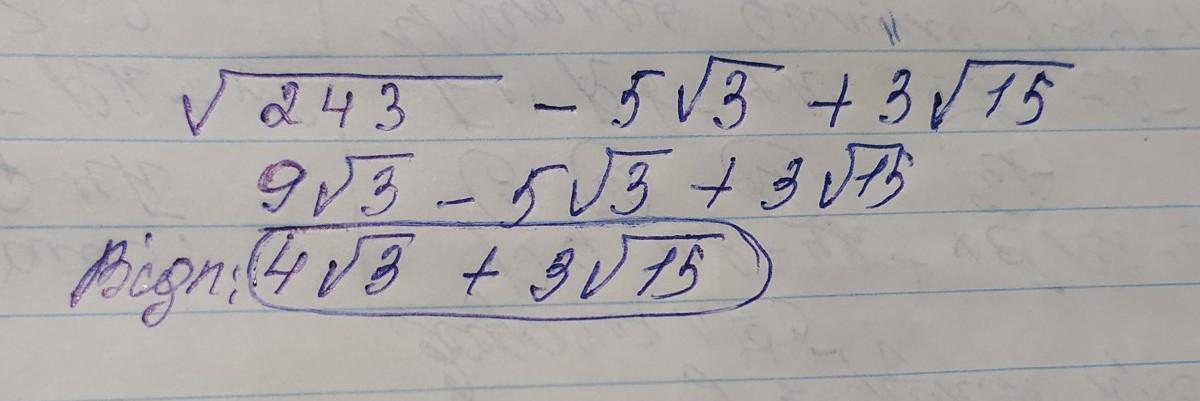 √243 - 5√3 + 3√15
9√3 - 5√3 + 3√15
Відп: 4√3 + 3√15